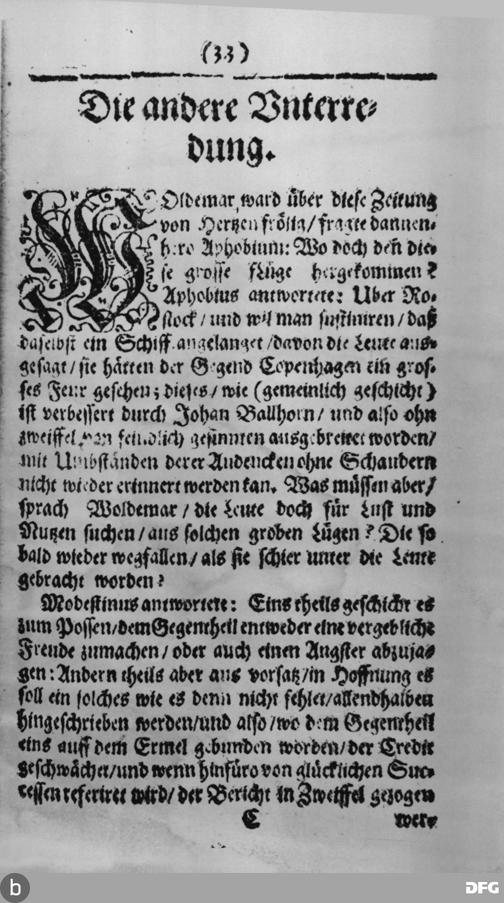 (33)
Die andere Vnterre-
dung.
WOldemar ward über diese Zeitung
von Hertzen frölig/ fragte dannen-
hero Aphobium: Wo doch den die-
se grosse Flüge hergekommen?
Aphobius antwortete: Uber Ro-
stock/ und wil man sustiniren/ daß
daselbst ein Schiff angelanget/ davon die Leute aus-
gesagt/ sie hätten der Gegend Copenhagen ein gros-
ses Feur gesehen; dieses/ wie (gemeinlich geschicht)
ist verbessert durch Johan Ballhorn/ und also ohn
zweiffel von feindlich gesinnten ausgebreitet worden/
mit Umbständen derer Andencken ohne Schaudern
nicht wieder erinnert werden kan. Was müssen aber/
sprach Woldemar/ die Leute doch für Lust und
Nutzen suchen/ aus solchen groben Lügen? Die so
bald wieder wegfallen/ als sie schier unter die Leute
gebracht worden?
Modestinus antwortete: Eins theils geschicht es
zum Possen/ dem Gegentheil entweder eine vergebliche
Freude zumachen/ oder auch einen Angster abzuja-
gen: Andern theils aber aus vorsatz/ in Hoffnung es
soll ein solches wie es denn nicht fehlet/ allendhalben
hingeschrieben werden/ und also/ wo dem Gegentheil
eins auff dem Ermel gebunden worden/ der Credit
geschwächet/ und wenn hinfüro von glücklichen Suc-
cessen referiret wird/ der Bericht in Zweiffel gezogen
C wer-
b
DFG